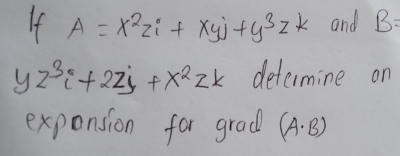 If A = x²zi + xyj + y³zk and B=
yz³i + 2zj + x²zk determine an
expansion for grad (A·B)